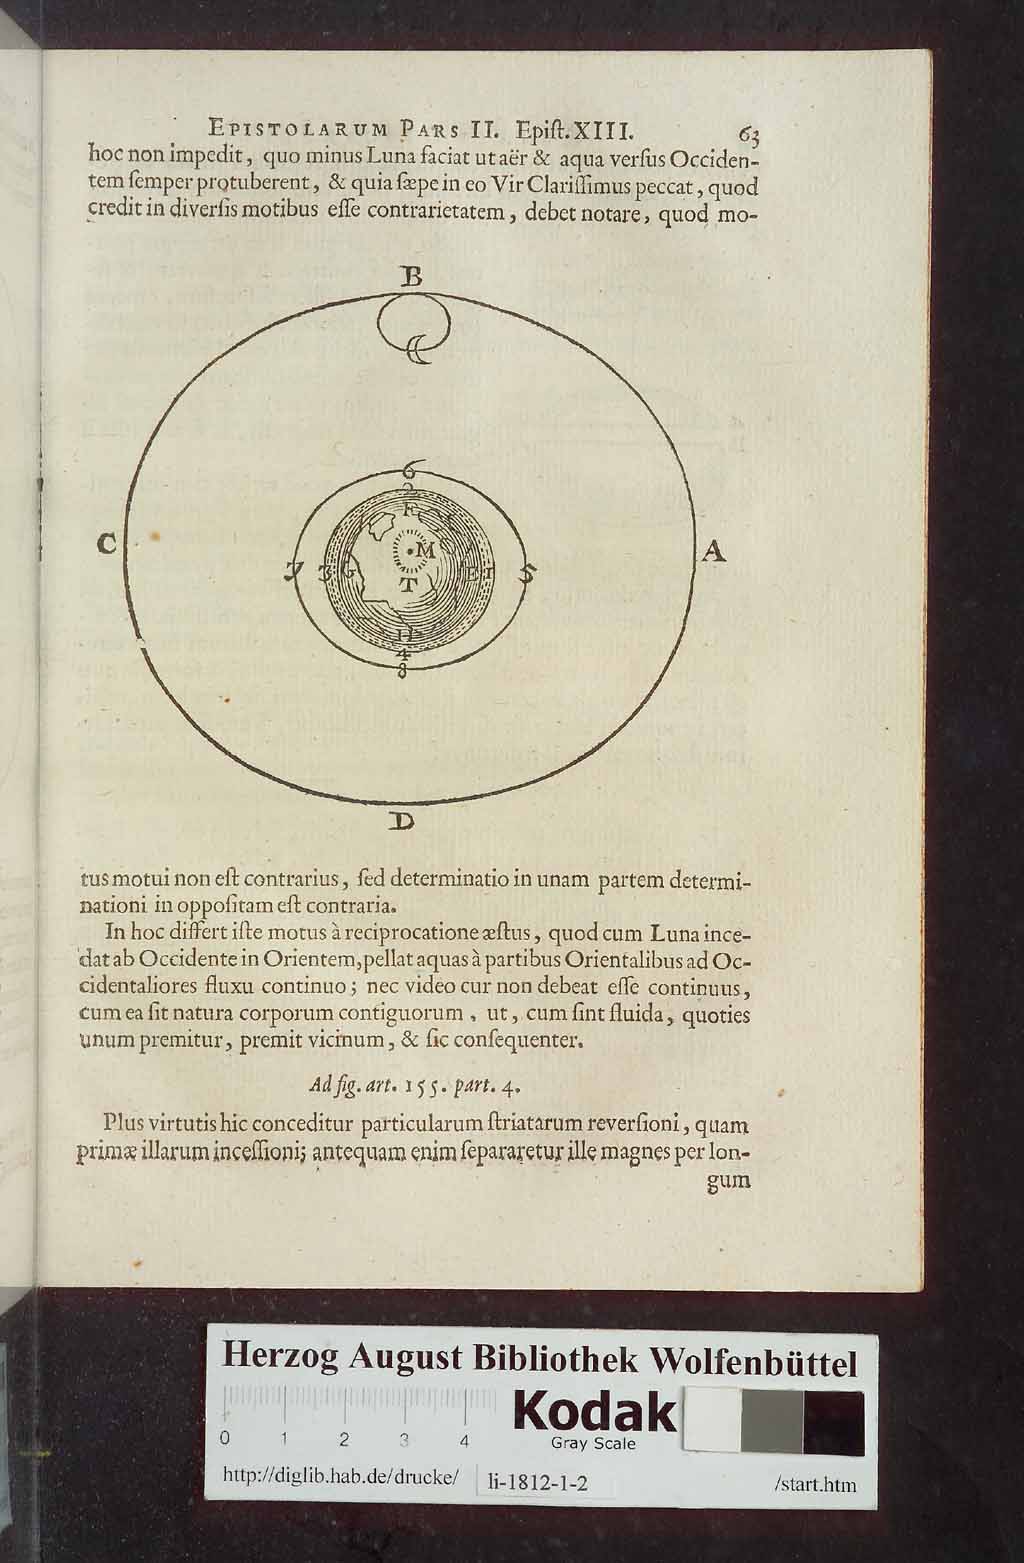 EPISTOLARUM PARS II. Epiſt. XIII. 63
hoc non impedit, quo minus Luna faciat ut aër & aqua verſus Occiden-
tem ſemper protuberent, & quia ſæpe in eo Vir Clariſſimus peccat, quod
credit in diverſis motibus eſſe contrarietatem, debet notare, quod mo-
B
6
2
F
C
M
A
7 3 G
E 1 5
T
H
4
8
D
tus motui non eſt contrarius, ſed determinatio in unam partem determi-
nationi in oppoſitam eſt contraria.
In hoc differt iſte motus à reciprocatione æſtus, quod cum Luna ince-
dat ab Occidente in Orientem, pellat aquas à partibus Orientalibus ad Oc-
cidentaliores fluxu continuo; nec video cur non debeat eſſe continuus,
cum ea ſit natura corporum contiguorum, ut, cum ſint fluida, quoties
unum premitur, premit vicinum, & ſic conſequenter.
Ad fig. art. 155. part. 4.
Plus virtutis hic conceditur particularum ſtriatarum reverſioni, quam
primæ illarum inceſſioni; antequam enim ſepararetur ille magnes per lon-
gum
Herzog August Bibliothek Wolfenbüttel
0 1 2 3 4
Kodak
Gray Scale
http://diglib.hab.de/drucke/ li-1812-1-2 /start.htm